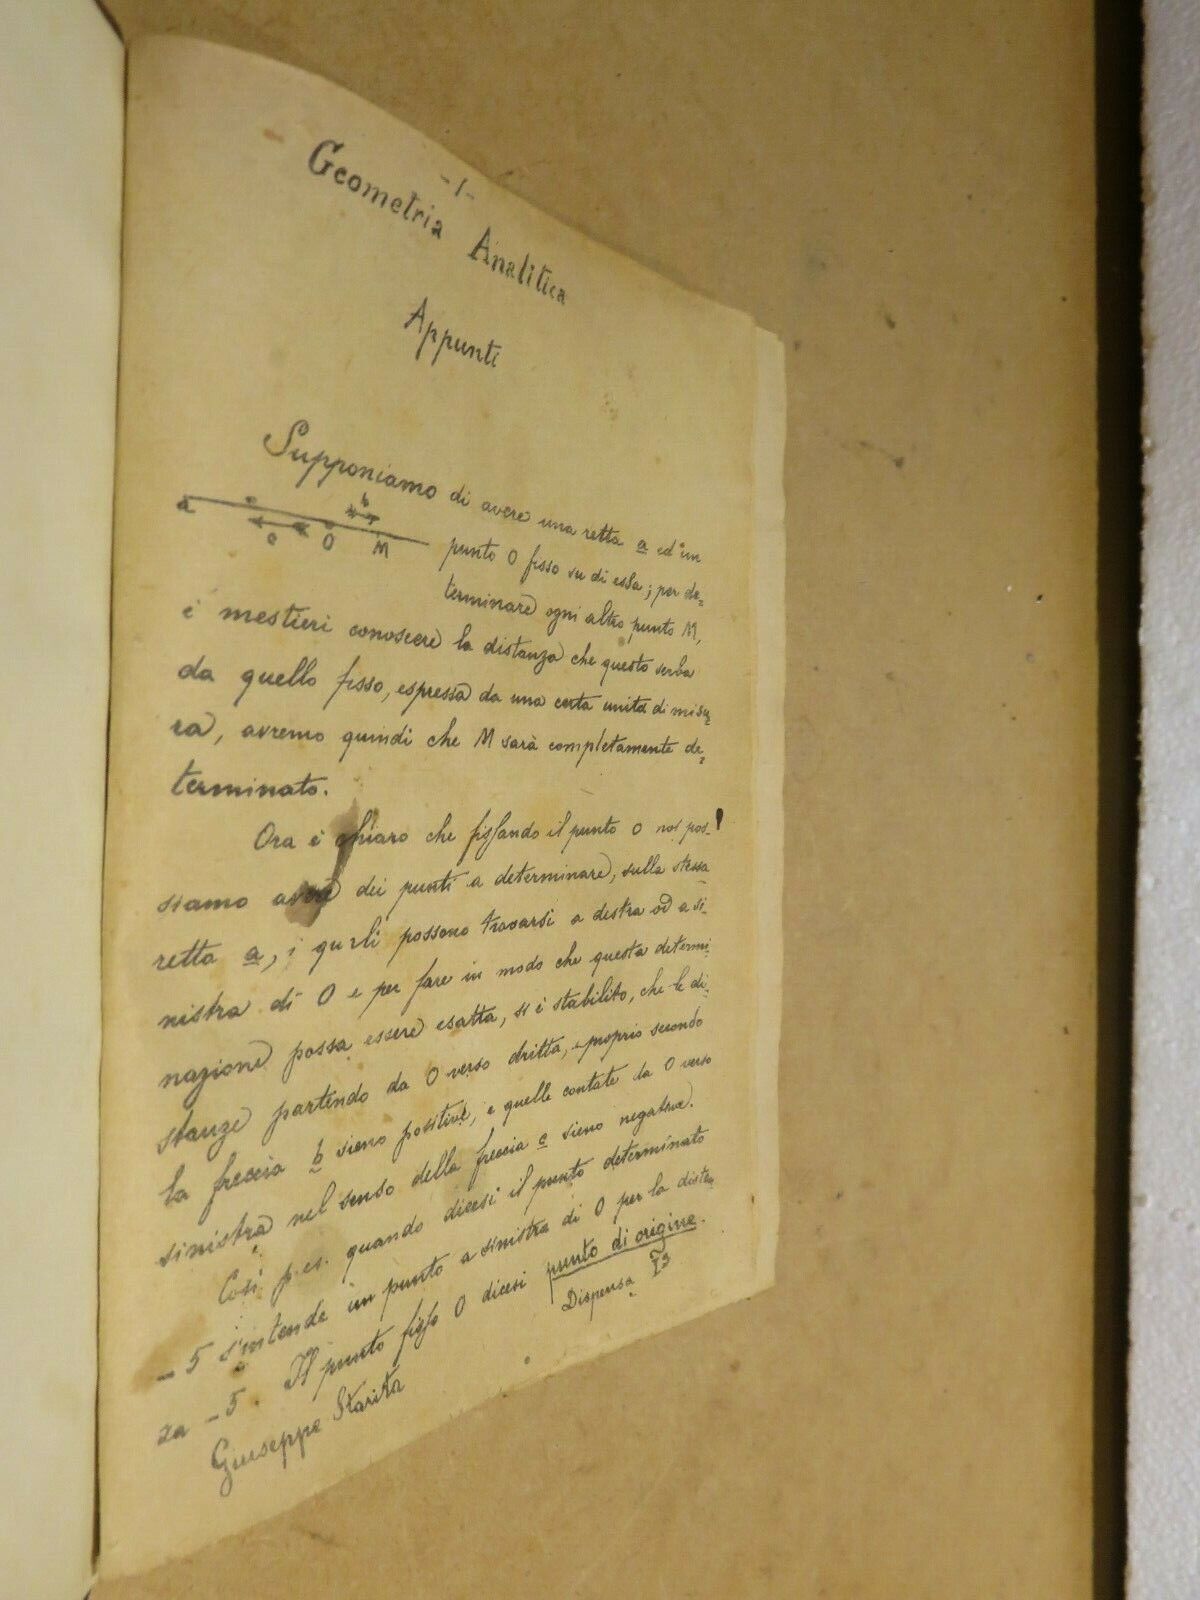 -1-
Geometria Analitica
Appunti
Supponiamo di avere una retta a ed un
a b c O M
punto O fisso su di essa; per de=
terminare ogni altro punto M,
è mestieri conoscere la distanza che questo serba
da quello fisso, espressa da una certa unità di misu=
ra, avremo quindi che M sarà completamente de=
terminato.
Ora è chiaro che fissando il punto O noi pos-
siamo avere dei punti a determinare, sulla stessa
retta a, i quali possono trovarsi a destra od a si-
nistra di O e per fare in modo che questa determi-
nazione possa essere esatta, si è stabilito, che le di-
stanze partendo da O verso dritta, e proprio secondo
la freccia b sieno positive, e quelle contate da O verso
sinistra nel senso della freccia c sieno negative.
Così p. es. quando dicesi il punto determinato
-5 s'intende un punto a sinistra di O per la distan
za -5. Il punto fisso O dicesi punto di origine.
Giuseppe Starita
Dispensa